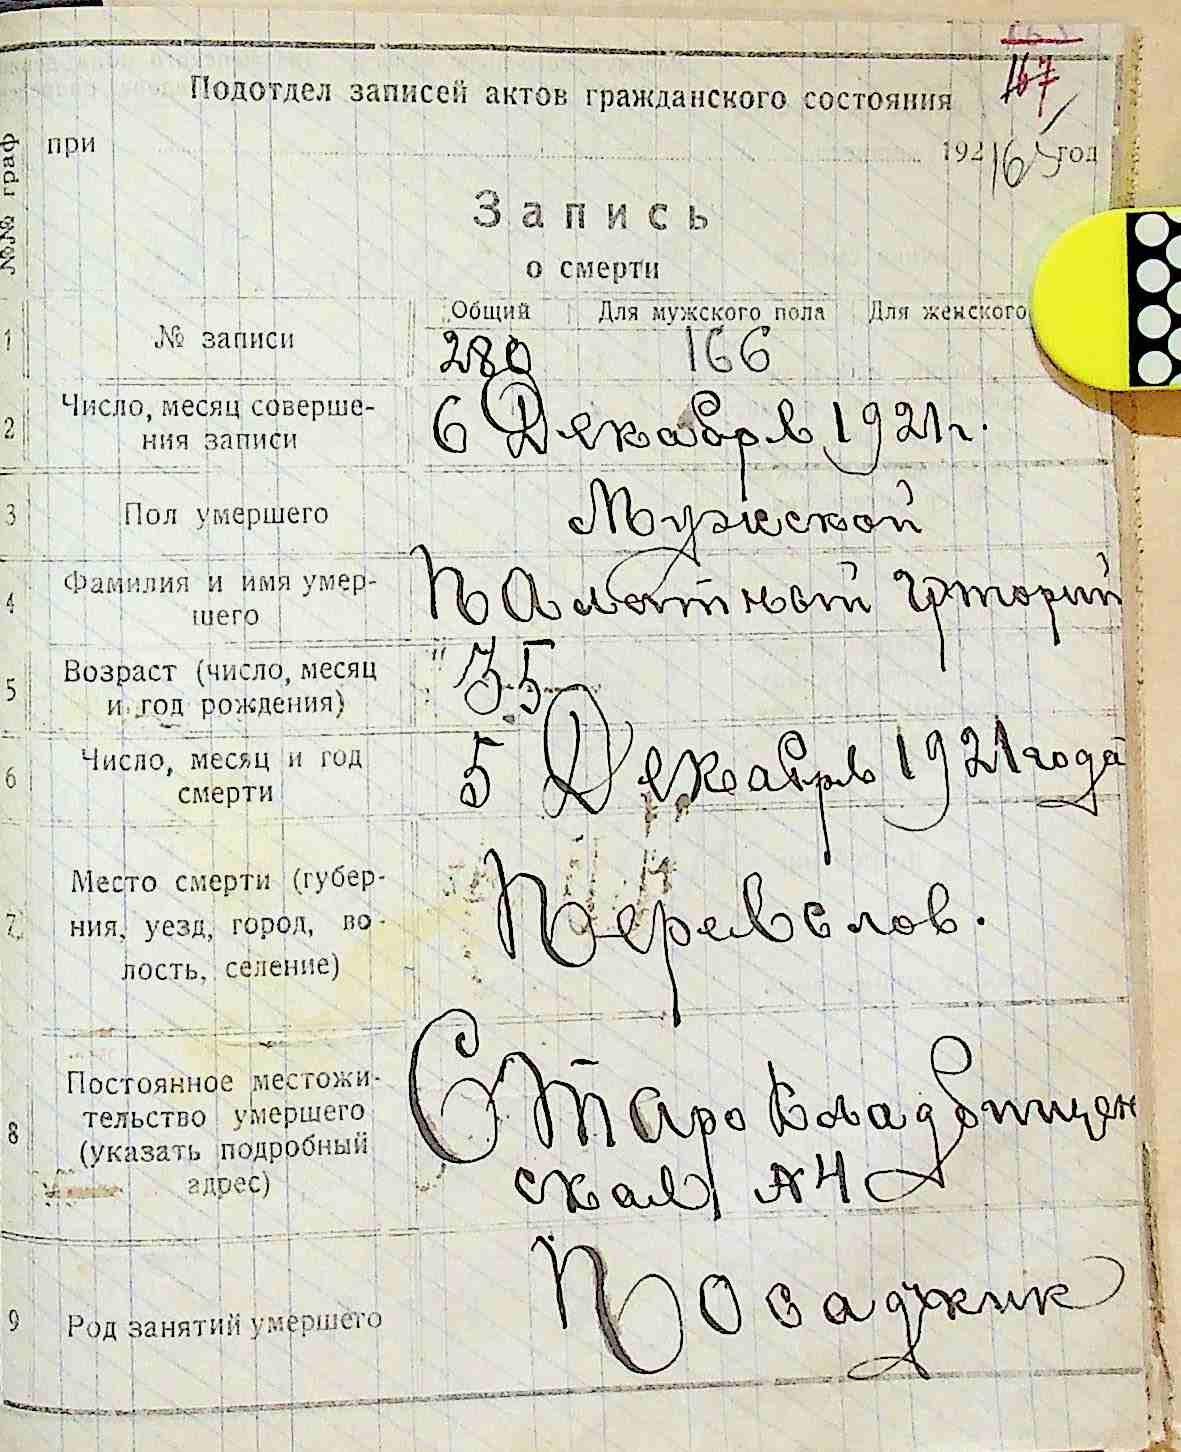 167
Подотдел записей актов гражданского состояния
при 192 год
№№ граф
Запись
о смерти
Общий Для мужского пола Для женского
1 № записи 280 166
2 Число, месяц соверше-
ния записи 6 Декабря 1921 г.
3 Пол умершего Мужской
4 Фамилия и имя умер-
шего
5 Возраст (число, месяц
и год рождения) 35
6 Число, месяц и год
смерти 5 Декабря 1921 года
7 Место смерти (губер-
ния, уезд, город, во-
лость, селение)
8 Постоянное местожи-
тельство умершего
(указать подробный
адрес) Старокладбищен
ская №4
9 Род занятий умершего Посаджик